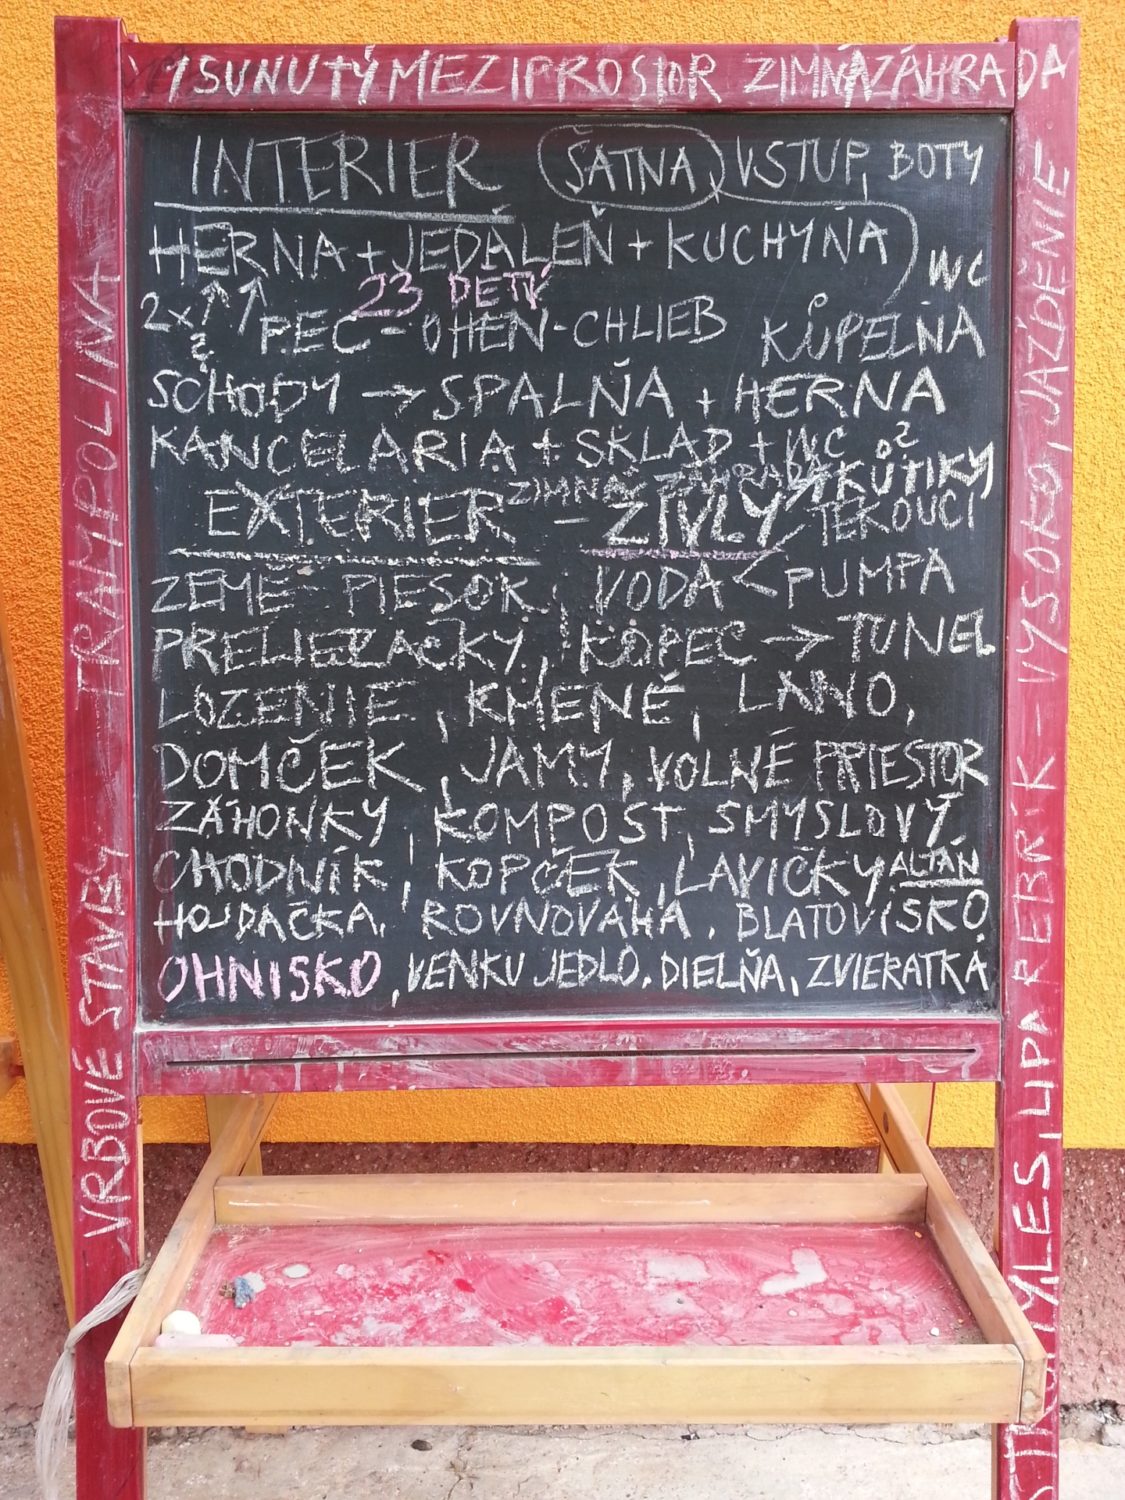 VYSUNUTÝ MEZIPROSTOR ZIMNÁ ZÁHRADA
INTERIER ŠATNA, VSTUP, BOTY
HERNA + JEDÁLEŇ + KUCHYŇA WC
23 DETÍ
2x PEC - OHEŇ - CHLIEB KÚPELŇA
SCHODY → SPALŇA + HERNA
KANCELARIA + SKLAD + WC
ZIMNÁ ZÁHRADA KÚTIKY
EXTERIER - ŽIVLY TEKOUCÍ
ZEMĚ PIESOK, VODA < PUMPA
PRELIEZAČKY, KOPEC → TUNEL
LOZENIE, KMENE, LANO,
DOMČEK, JAMY, VOLNÉ PRIESTOR
ZÁHONKY, KOMPOST, SMYSLOVÝ
CHODNÍK, KOPČEK, LAVIČKY ALTÁN
HOJDAČKA, ROVNOVÁHA, BLATOVISKO,
OHNISKO, VENKU JEDLO, DIELŇA, ZVIERATKÁ
VRBOVÉ STAVBY TRAMPOLINA
STROMY, LES, LIPA REBRÍK - VYSOKO, JAZDENIE